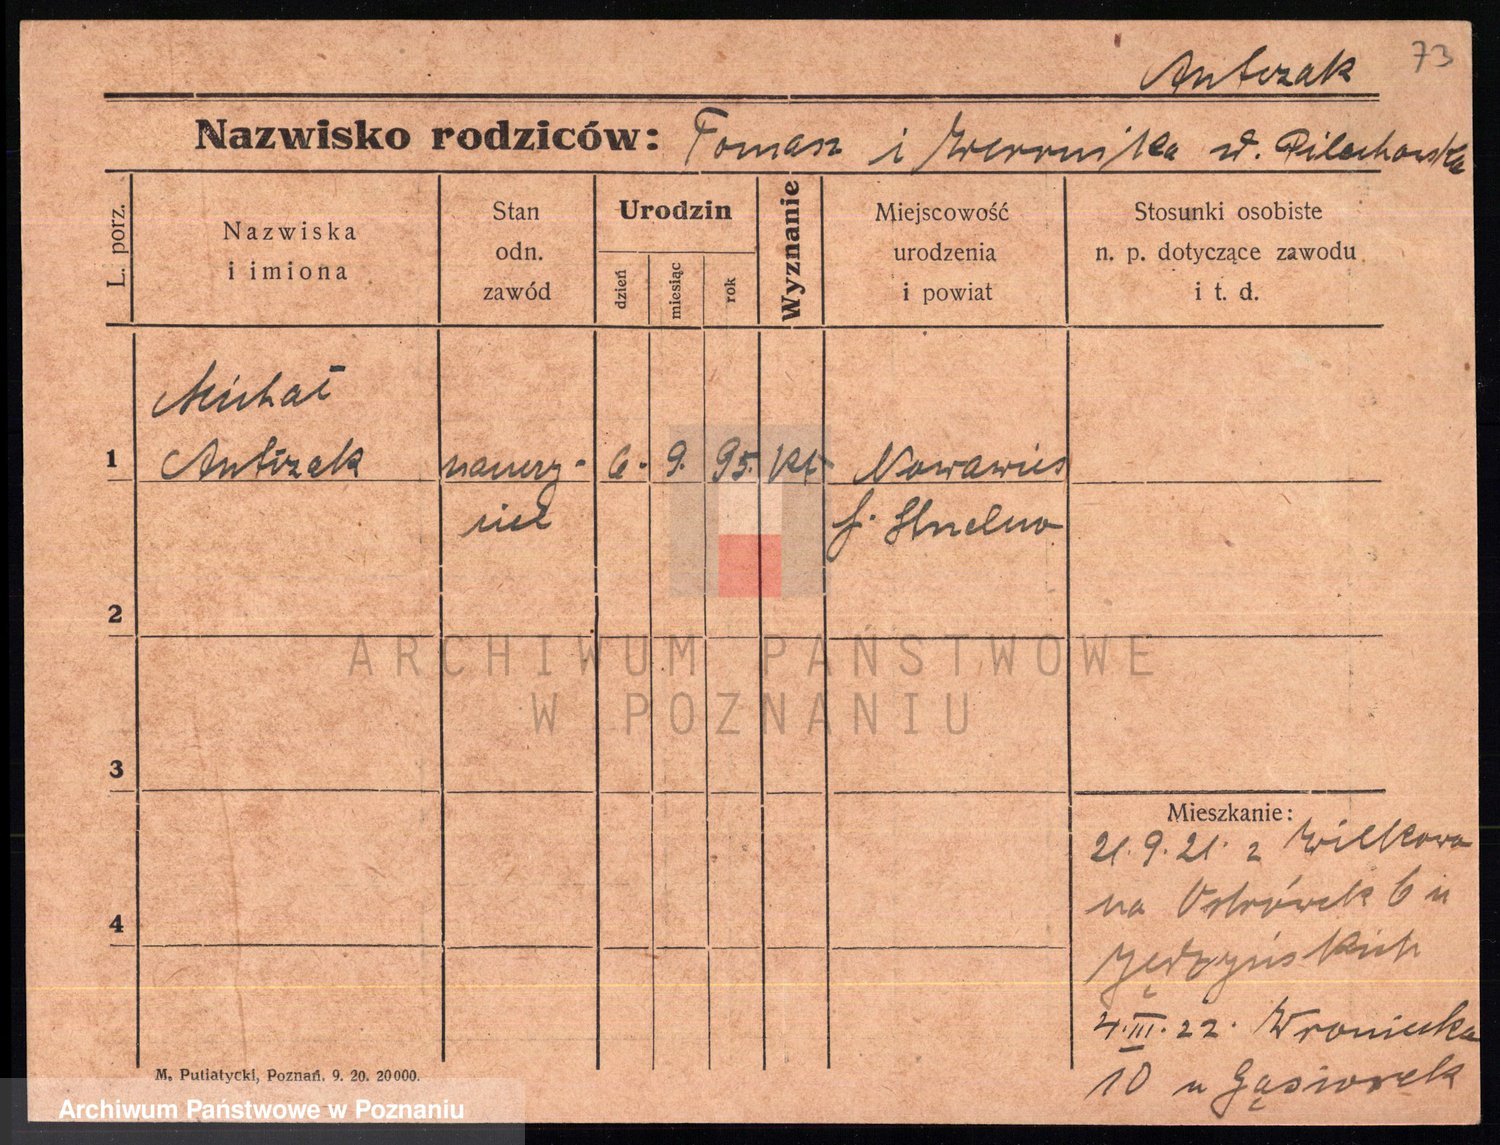 73
Antczak
Nazwisko rodziców: Tomasz i Weronika d. Pilachowska
L. porz.
Nazwiska
i imiona
Stan
odn.
zawód
Urodzin
dzień
miesiąc
rok
Wyznanie
Miejscowość
urodzenia
i powiat
Stosunki osobiste
n. p. dotyczące zawodu
i t. d.
Michał
1 Antczak nauczy- 6. 9. 95. kt Nowawieś
ciel
2
3
4
ARCHIWUM PAŃSTWOWE
W POZNANIU
Mieszkanie:
21. 9. 21. z Wilkowa
na Ostrówek 6 u
4.III.22. Wroniecka
10 u Gąsiorek
M. Putiatycki, Poznań. 9. 20. 20000.
Archiwum Państwowe w Poznaniu